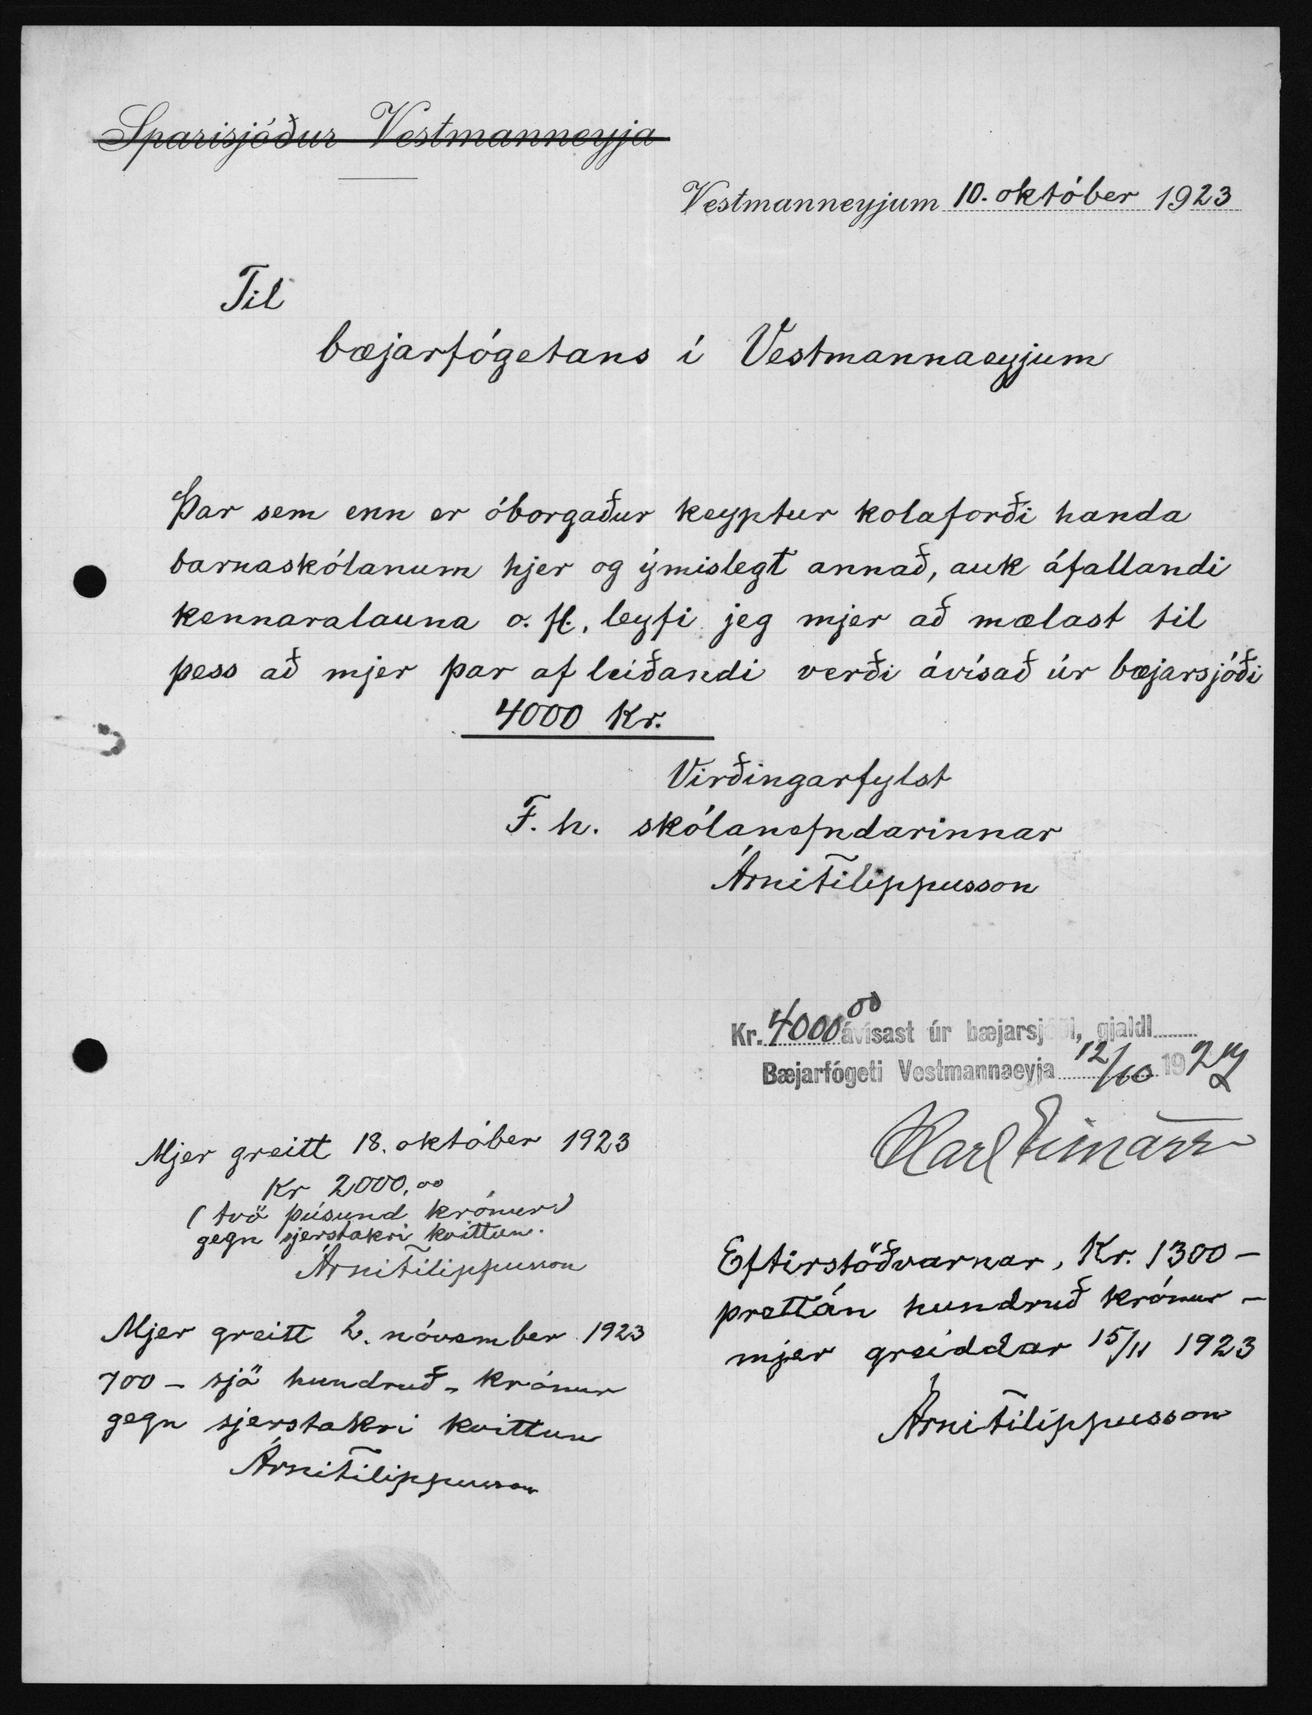 Sparisjóður Vestmanneyja
Vestmanneyjum 10. október 1923
Til
bæjarfógetans í Vestmannaeyjum
Þar sem enn er óborgaður keyptur kolaforði handa
barnaskólanum hjer og ýmislegt annað, auk áfallandi
kennaralauna o. fl., leyfi jeg mjer að mælast til
þess að mjer þar af leiðandi verði ávísað úr bæjarsjóði
4000 Kr.
Virðingarfylst
F. h. skólanefndarinnar
Árni Filippusson
Kr. 4000 00 ávísast úr bæjarsjóði, gjaldl
Bæjarfógeti Vestmannaeyja 12/10 19
Mjer greitt 18. október 1923
Kr 2000,00
( tvö þúsund krónur )
gegn sjerstakri kvittun.
Árni Filippusson
Mjer greitt 2. nóvember 1923
700 – sjö hundruð – krónur
gegn sjerstakri kvittun
Árni Filippusson
Karl Einarss
Eftirstöðvarnar, Kr. 1300 –
þrettán hundruð krónur –
mjer greiddar 15/11 1923
Árni Filippusson